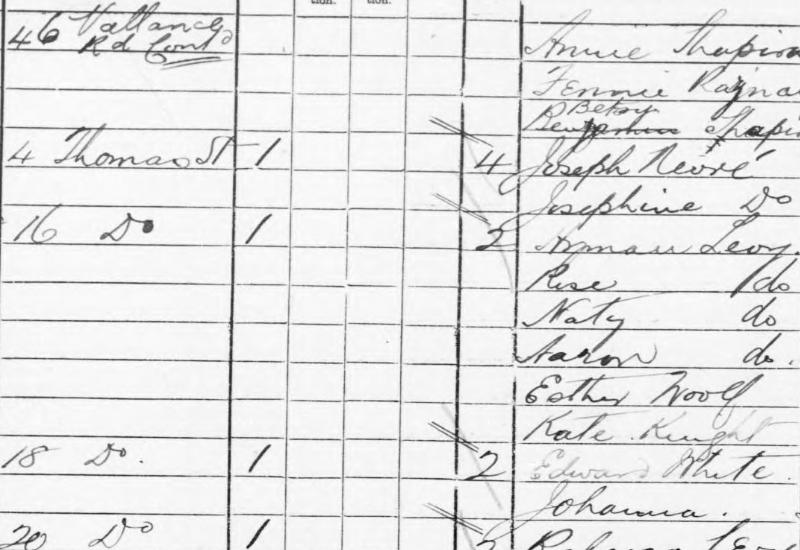 tion. tion.
46 Vallance
Rd Contd
Annie Shapiro
Fennie
Betsy
Benjamin Shapi
4 Thomas St 1 4 Joseph
Josephine Do
16 Do 1 Levy
Rise do
Naty do
Aaron do.
Esther Woolf
Kate Knight
18 Do. 1 2 Edward White.
Johanna.
20 Do 1